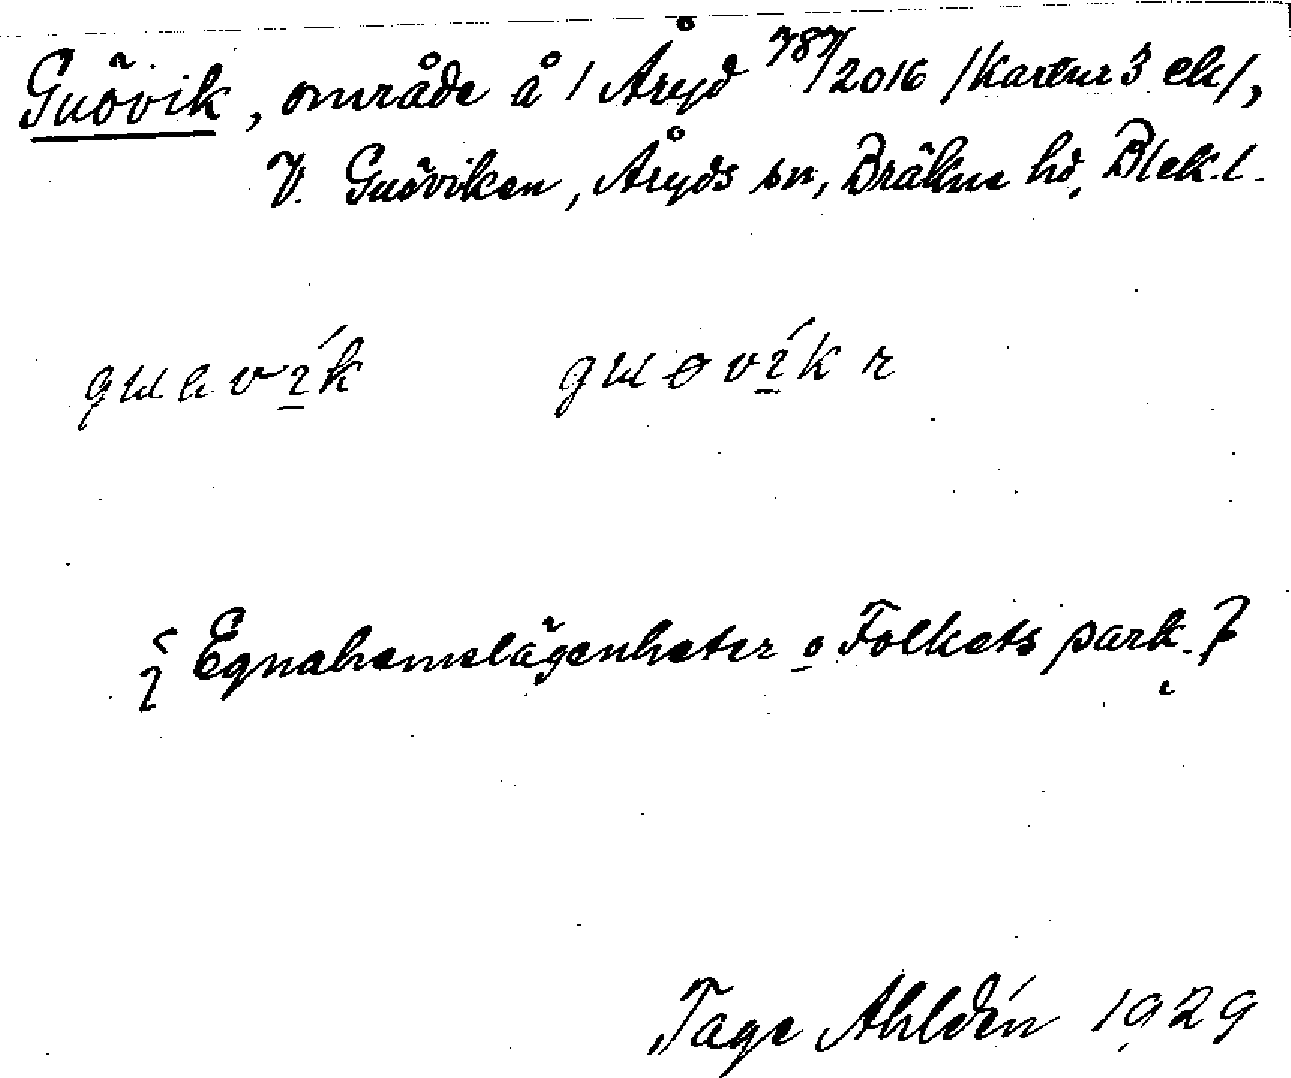 Guövik, område å 1 Åryd 787/2016 /Kartur 3 ek/,
V. Guöviken, Åryds sn, Bräkne hd, Blek. l.
Egnahemslägenheter o Folkets park.
Tage Ahldén 1929